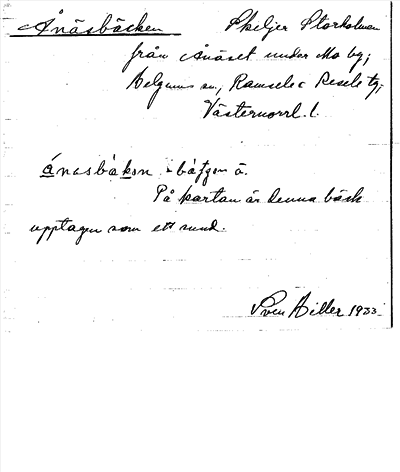 Ånäsbäcken Skeljer Storholmen
från Ånäset under Mo by;
Helgums sn, Ramsele o Resele tg;
Västernorrl. l.
ánasbàkɘn
På kartan är denna bäck
upptagen som ett sund.
Sven Hiller 1933